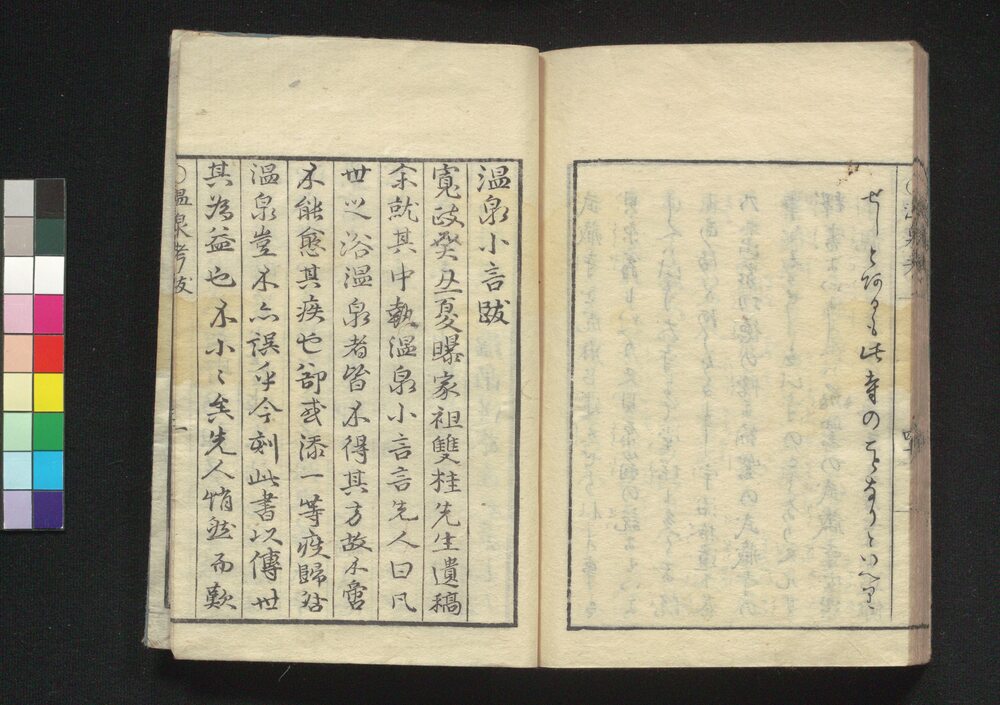 此寺のことなりといへり
温泉小言跋
寛政癸丑夏曝家祖雙桂先生遺稿
余就其中執温泉小言言先人曰凡
世之浴温泉者皆不得其方故不啻
不能愈其疾也却或添一等疾歸
温泉豈不亦誤乎今刻此書以傳世
其為益也不小々矣先人悄然而歎
○温泉考跋